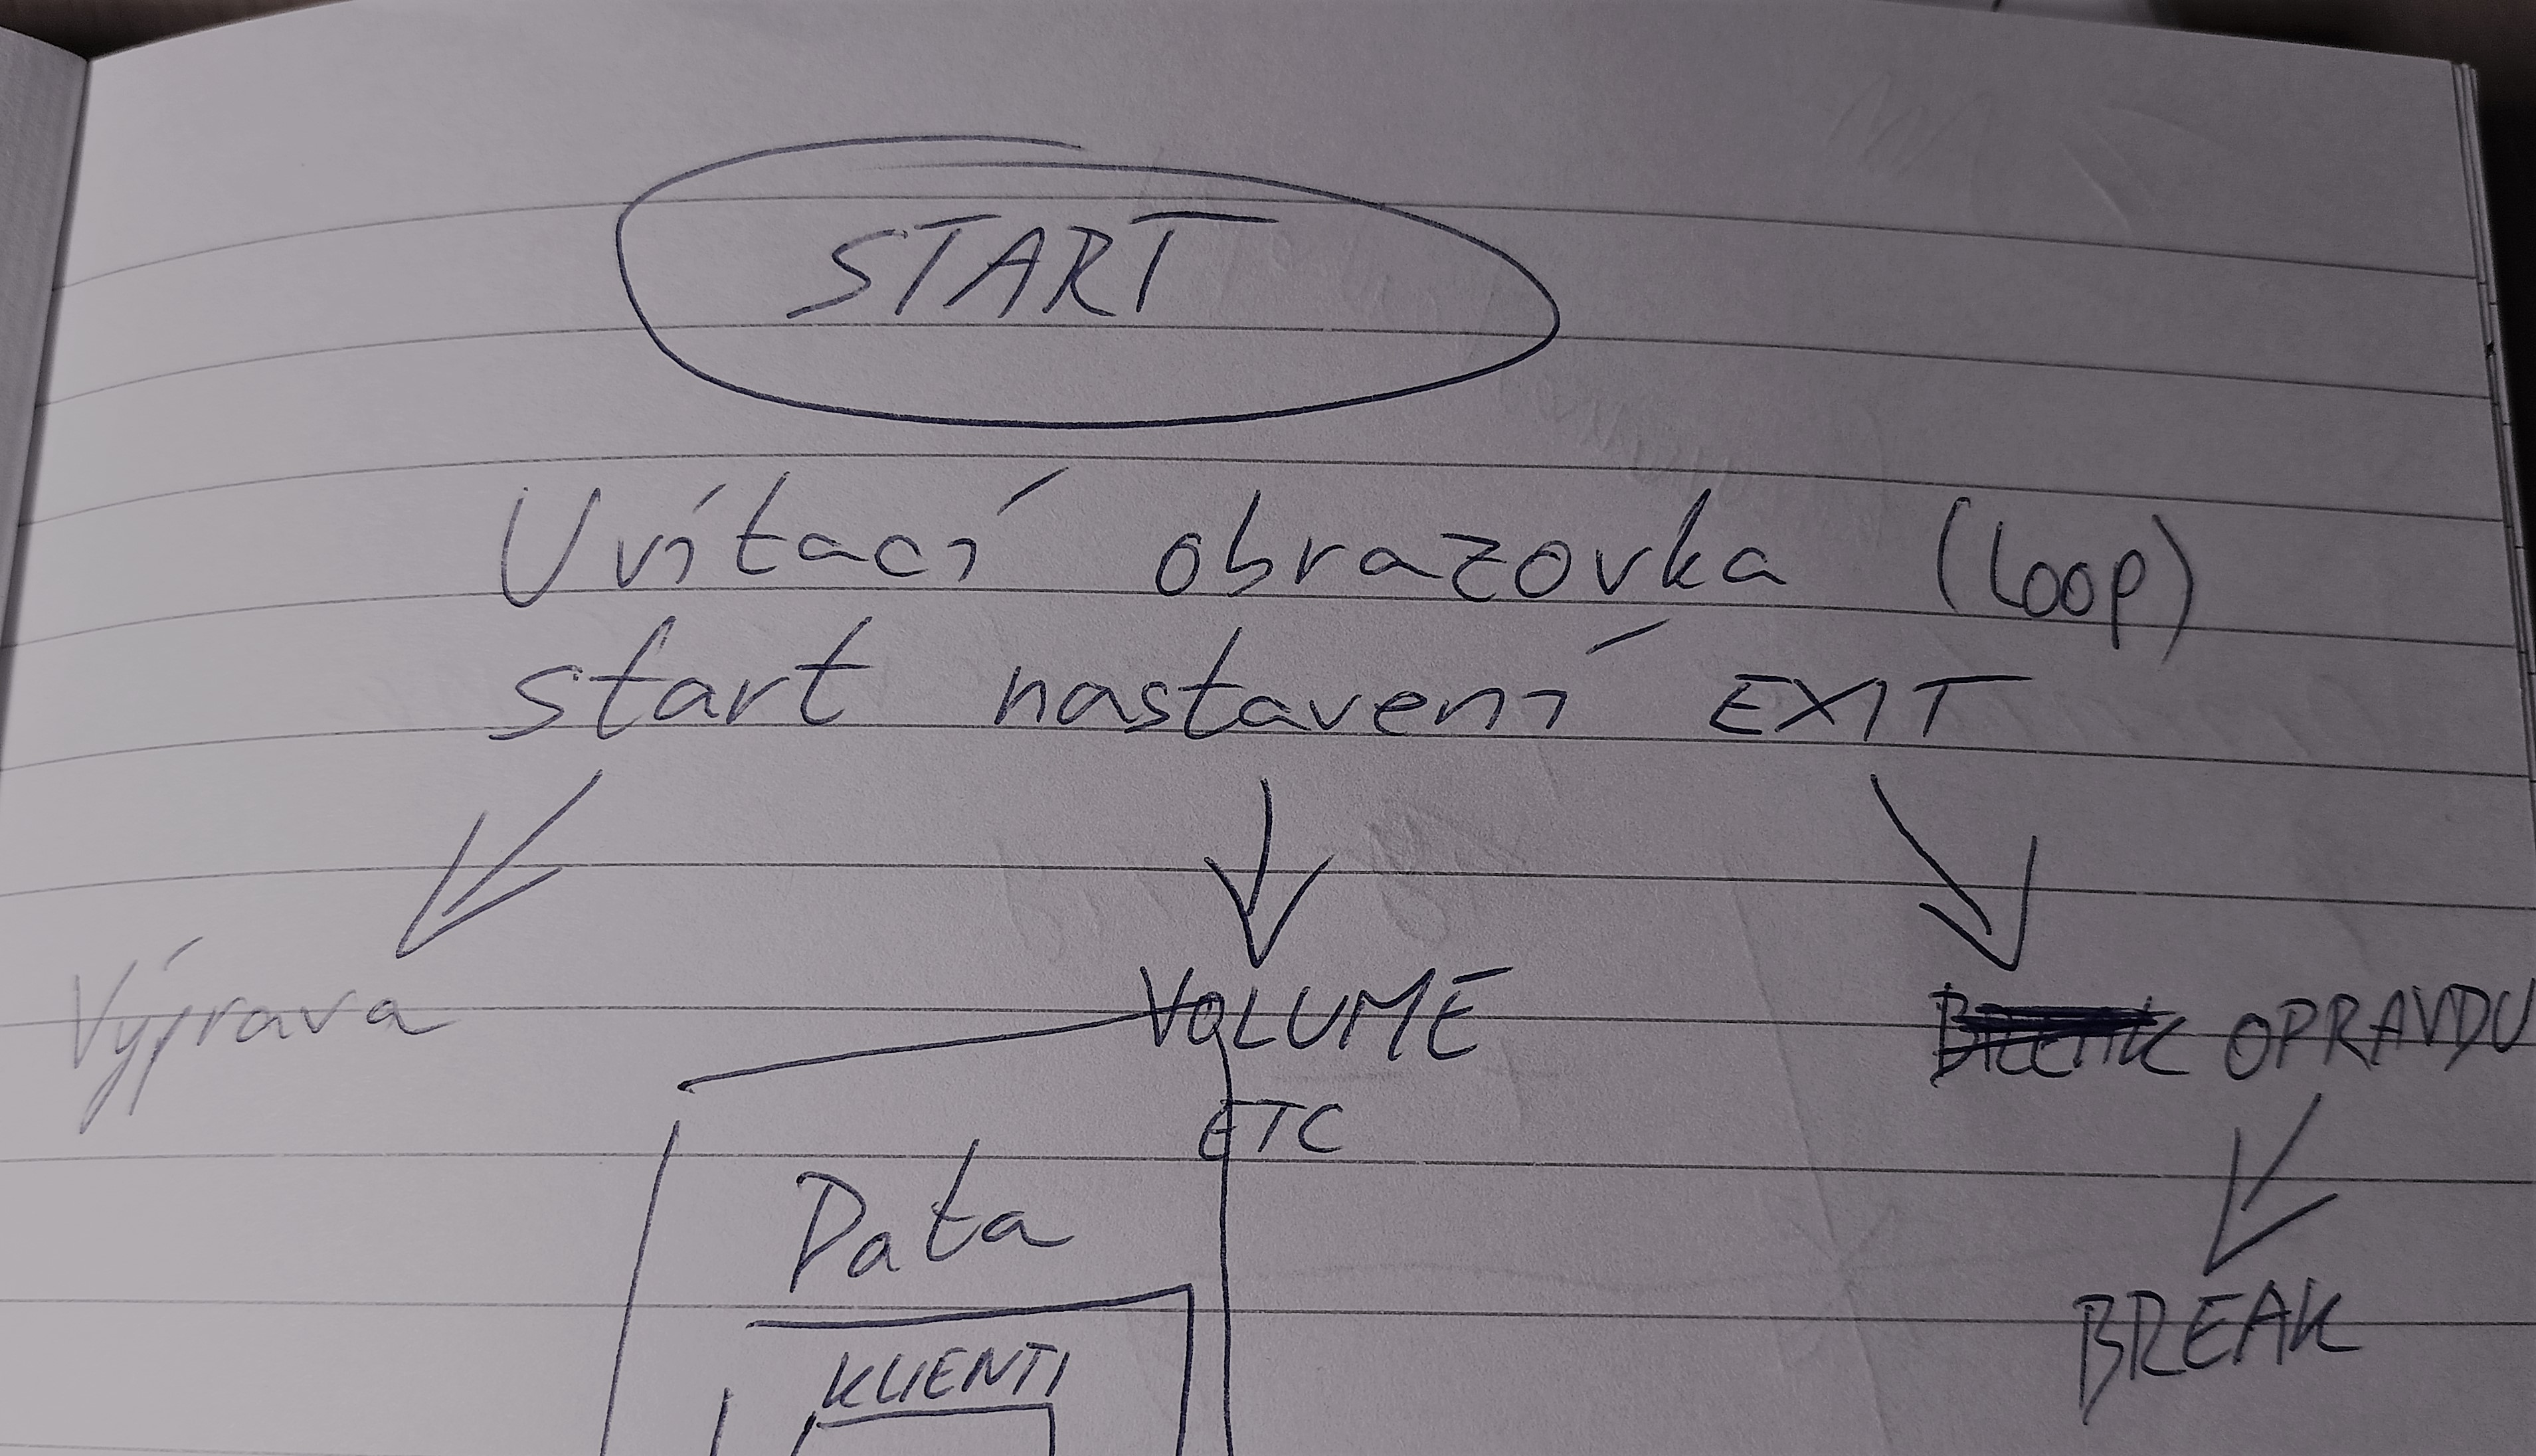 START
Uvítací obrazovka (loop)
start nastavení EXIT
Výprava VOLUME OPRAVDU
ETC
Data
BREAK
KLIENTI